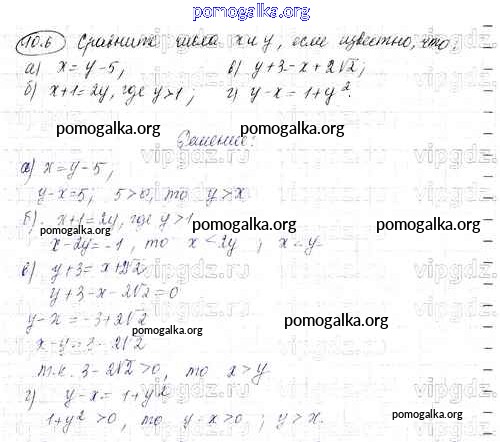 pomogalka.org
10.6 Сравните числа x и y, если известно, что:
а) x = y - 5; в) y + 3 = x + 2√2;
б) x + 1 = 2y, где y > 1; г) y - x = 1 + y².
pomogalka.org pomogalka.org
Решение:
а) x = y - 5;
y - x = 5; 5 > 0, то y > x
pomogalka.org
б) x + 1 = 2y, где y > 1
pomogalka.org pomogalka.org
x - 2y = -1, то x < 2y; x < y.
в) y + 3 = x + 2√2
y + 3 - x - 2√2 = 0
y - x = -3 + 2√2
pomogalka.org
pomogalka.org
x - y = 3 - 2√2
т.к. 3 - 2√2 > 0, то x > y
г) y - x = 1 + y²
pomogalka.org
1 + y² > 0, то y - x > 0; y > x.
pomogalka.org
vipgdz.ru